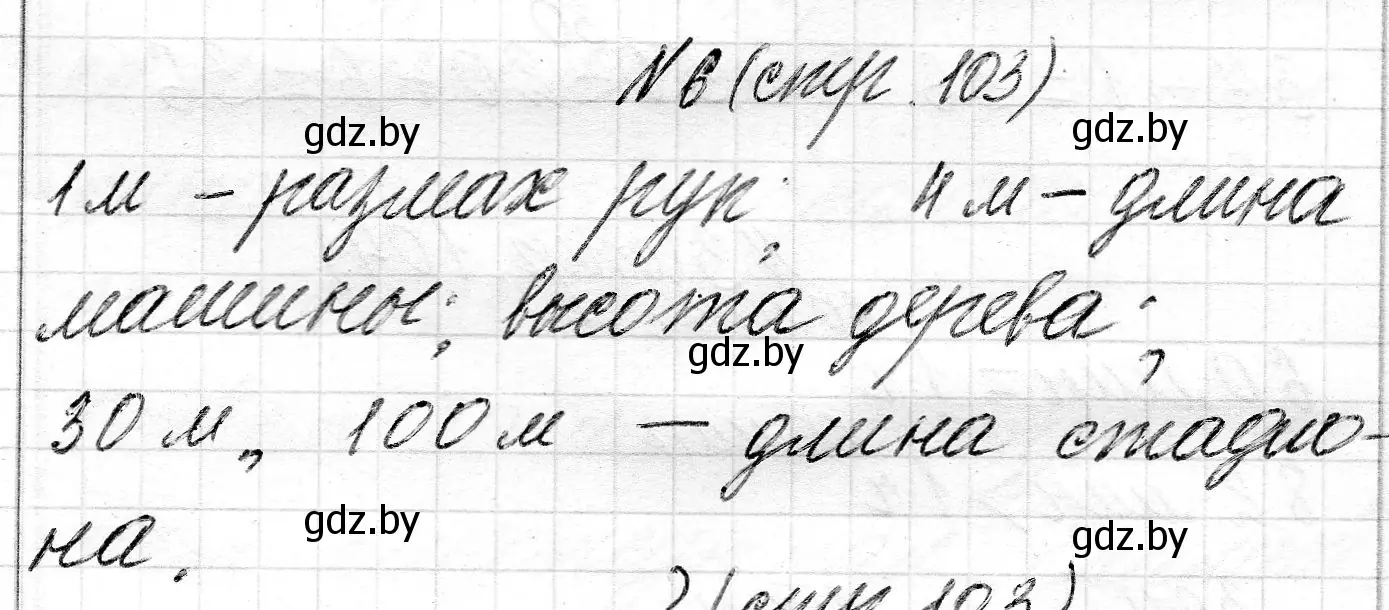 N 6 (стр. 103)
gdz.by gdz.by
1 м - размах рук; 4 м - длина
машины; высота дерева;
gdz.by
30 м, 100 м - длина стадио-
на.
gdz.by gdz.by
? (стр. 103)